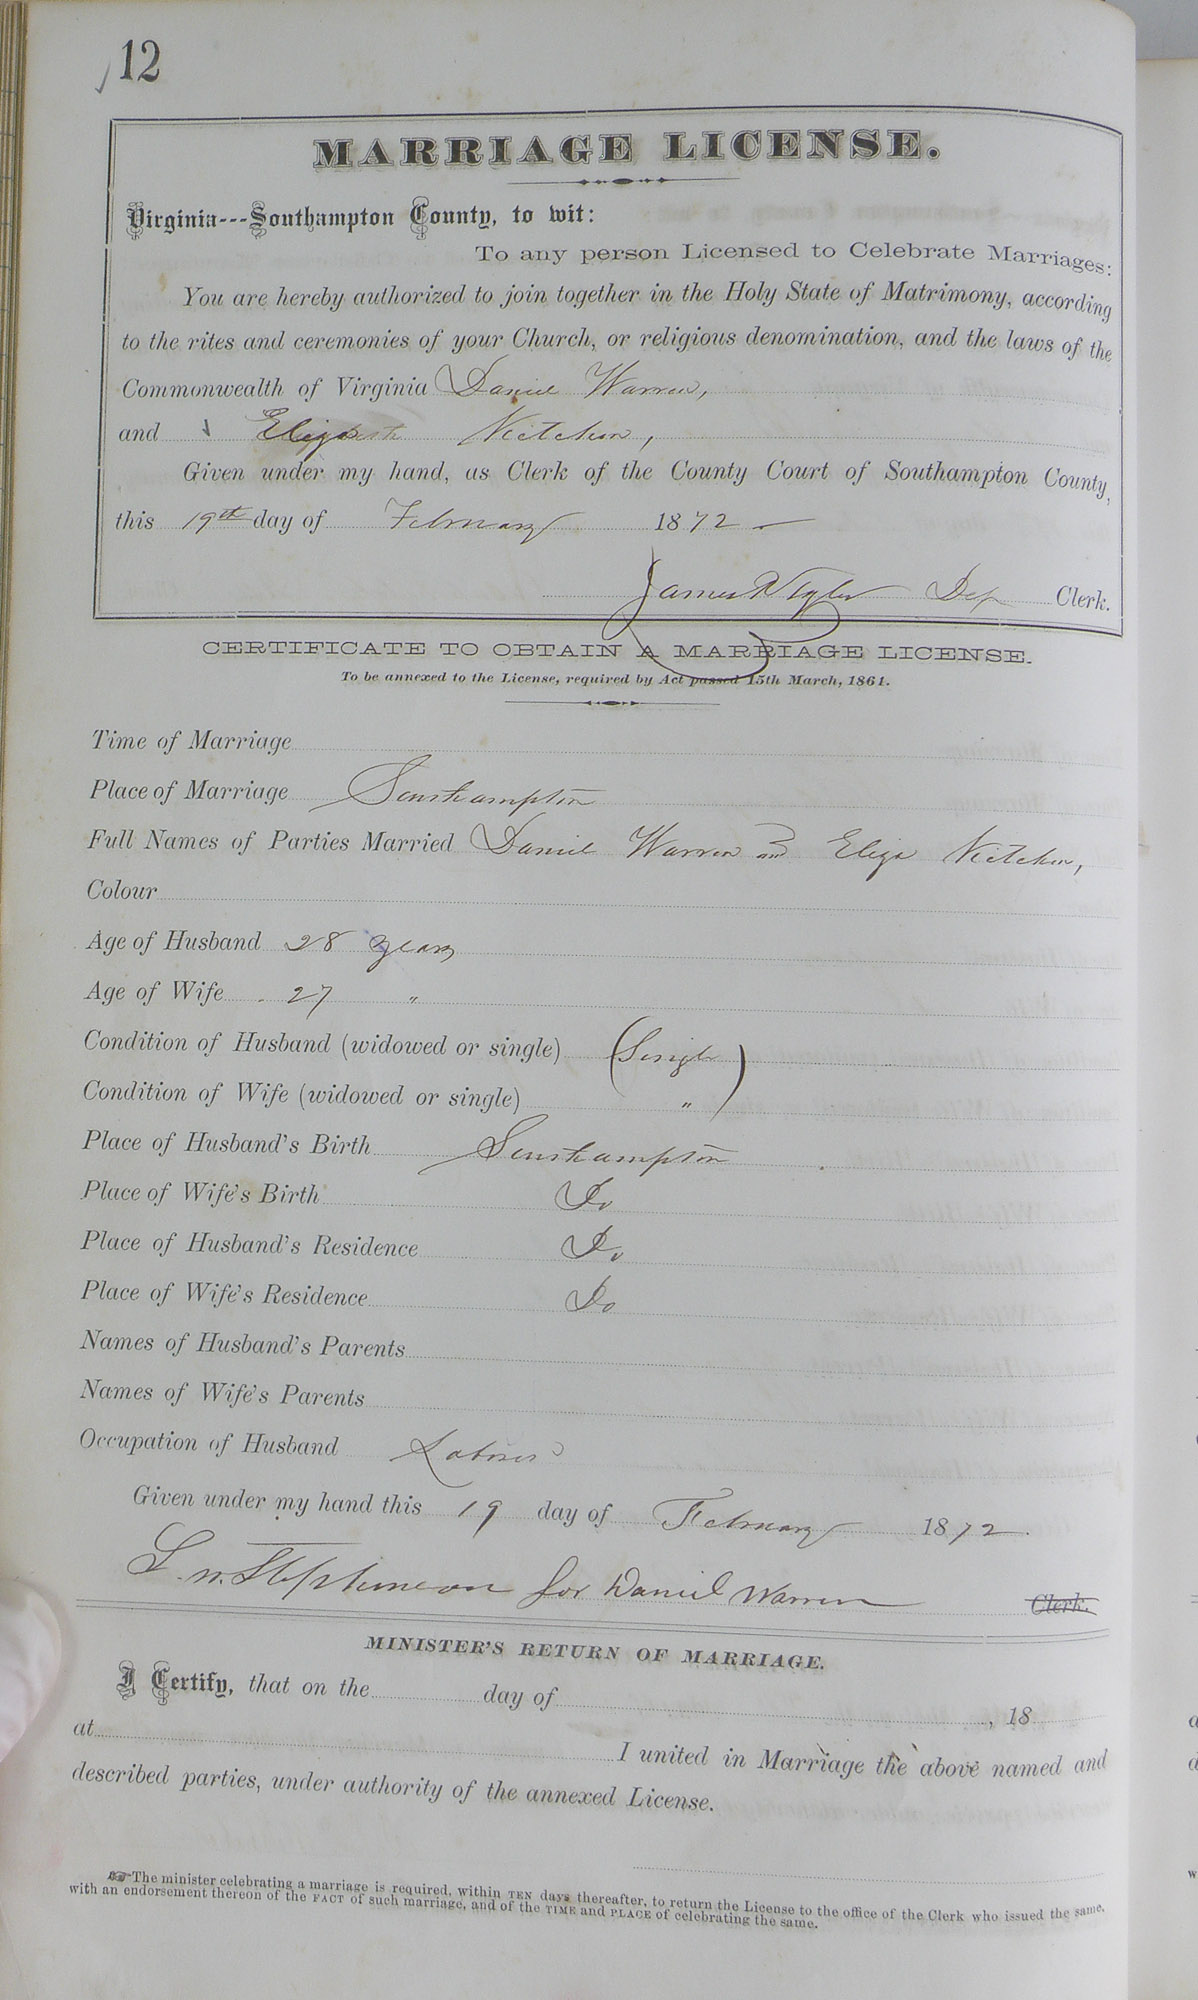 12
MARRIAGE LICENSE.
Virginia---Southampton County, to wit:
To any person Licensed to Celebrate Marriages:
You are hereby authorized to join together in the Holy State of Matrimony, according
to the rites and ceremonies of your Church, or religious denomination, and the laws of the
Commonwealth of Virginia Daniel Warren,
and Kitchen,
Given under my hand, as Clerk of the County Court of Southampton County,
this 19th day of February 1872
James Dep Clerk.
CERTIFICATE TO OBTAIN A MARRIAGE LICENSE.
To be annexed to the License, required by Act passed 15th March, 1861.
Time of Marriage
Place of Marriage Southampton
Full Names of Parties Married Daniel Warren and Eliza Kitchen,
Colour
Age of Husband 28 years
Age of Wife 27 "
Condition of Husband (widowed or single) (Single
Condition of Wife (widowed or single) " )
Place of Husband's Birth Southampton
Place of Wife's Birth Do
Place of Husband's Residence Do
Place of Wife's Residence Do
Names of Husband's Parents
Names of Wife's Parents
Occupation of Husband Laborer
Given under my hand this 19 day of February 1872.
Stephenson for Daniel Warren Clerk.
MINISTER'S RETURN OF MARRIAGE.
I Certify, that on the day of , 18
at I united in Marriage the above named and
described parties, under authority of the annexed License.
☞The minister celebrating a marriage is required, within TEN days thereafter, to return the License to the office of the Clerk who issued the same,
with an endorsement thereon of the FACT of such marriage, and of the TIME and PLACE of celebrating the same.